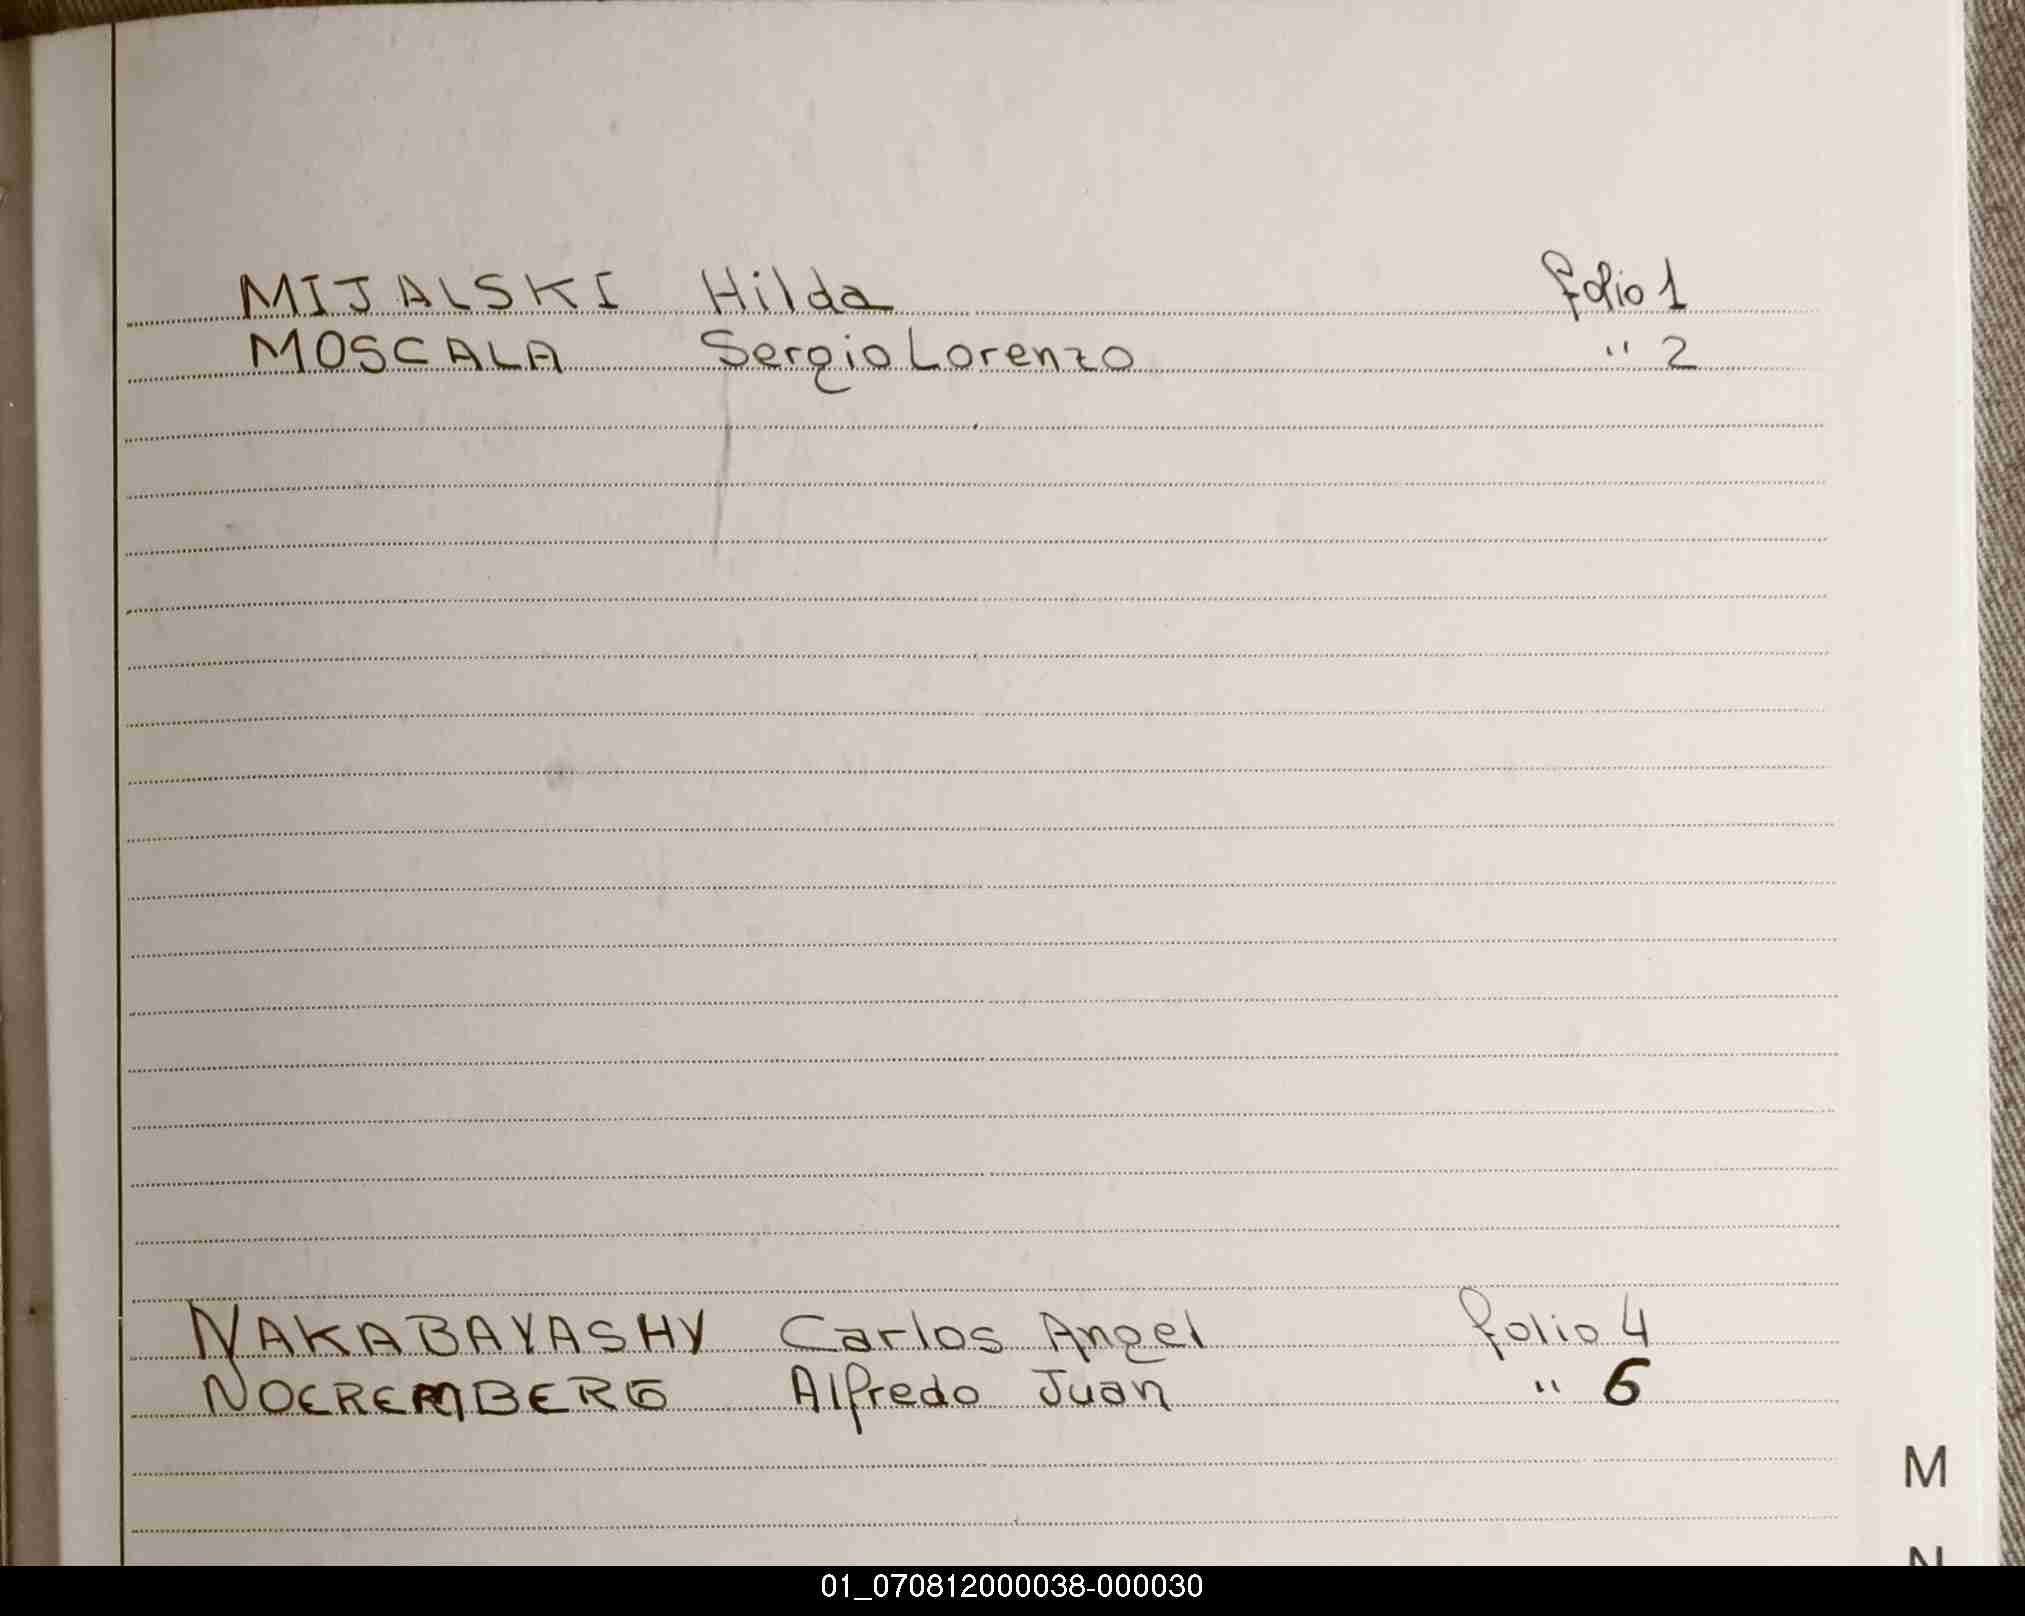 MIJALSKI Hilda folio 1
MOSCALA Sergio Lorenzo " 2
NAKABAYASHY Carlos Angel folio 4
NOEREMBERG Alfredo Juan " 6
M
N
01_070812000038-000030